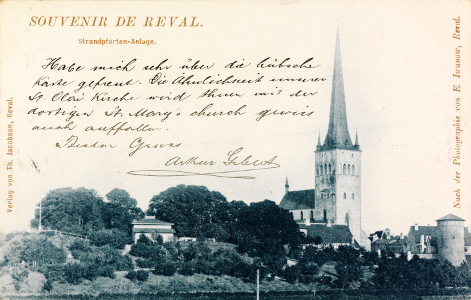 SOUVENIR DE REVAL.
Strandpforten-Anlage.
Habe mich sehr über die hübsche
Karte gefreut. Die Ähnlichkeit unserer
St. Olai Kirche wird Ihnen mit der
dortigen St. Mary's church gewiss
auch auffallen.
Besten Gruss
Arthur
Verlag von Th. Jacobson, Reval.
Nach der Photographie von E. Iwanow, Reval.